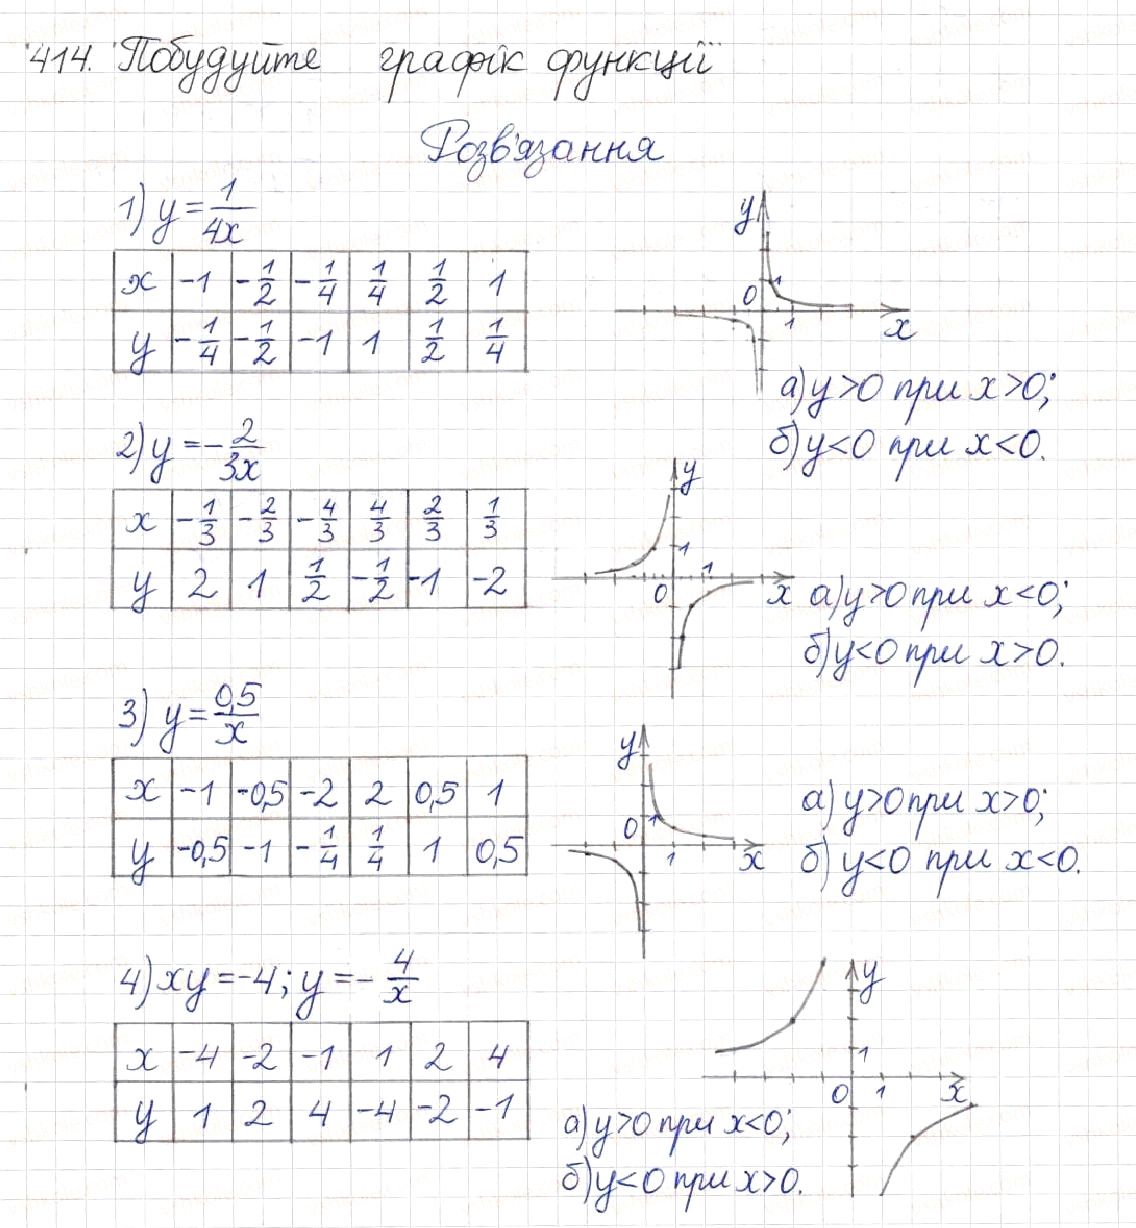 414. Побудуйте графік функції
Розв'язання
1) y = 1/4x
x -1 -1/2 -1/4 1/4 1/2 1
y -1/4 -1/2 -1 1 1/2 1/4
y
1
0
1
x
а) y>0 при x>0;
б) y<0 при x<0.
2) y = -2/3x
x -1/3 -2/3 -4/3 4/3 2/3 1/3
y 2 1 1/2 -1/2 -1 -2
y
1
1
0
x
а) y>0 при x<0;
б) y<0 при x>0.
3) y = 0,5/x
x -1 -0,5 -2 2 0,5 1
y -0,5 -1 -1/4 1/4 1 0,5
y
1
0
1
x
а) y>0 при x>0;
б) y<0 при x<0.
4) xy = -4; y = -4/x
x -4 -2 -1 1 2 4
y 1 2 4 -4 -2 -1
y
1
0
1
x
а) y>0 при x<0;
б) y<0 при x>0.